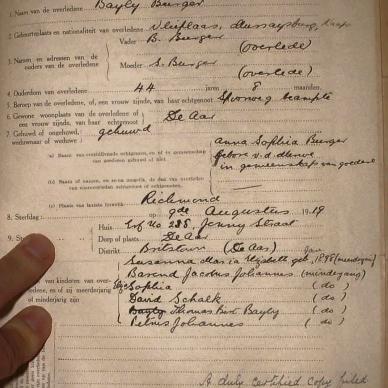 1. Naam van de overledene Bayly Burger
2. Geboorteplaats en nationaliteit van overledene Vleiplaas, Murraysburg, Kaap
Vader B. Burger
3. Namen en adressen van de ouders van de overledene (overlede)
Moeder S. Burger
(overlede)
4. Ouderdom van overledene 44 jaren 8 maanden.
5. Beroep van de overledene, of, een vrouw zijnde, van haar echtgenoot Spoorweg beampte
6. Gewone woonplaats van de overledene of een vrouw zijnde, van haar echtgenoot De Aar
7. Gehuwd of ongehuwd, weduwnaar of weduwe gehuwd
Anna Sophia Burger
(a) Naam van overblijvende echtgenoot, en of in gemeenschap van goederen gehuwd of niet
gebore v.d. Merwe
in gemeenskap van goedere
(c) Plaats van laatste huwelik Richmond
8. Sterfdag: op 9de Augustus 1919
Huis Erf No 288, Jenny Straat
9. Dorp of plaats De Aar
Distrikt Britstown (De Aar)
Susanna Maria Elizabeth geb. 1898
Barend Jacobus Johannes (minderjarig)
Sophia (do)
David Schalk (do)
Thomas Burt Bayly (do)
Petrus Johannes (do)
van kinderen van overledene, en of zij meerderjarig of minderjarig zijn
A duly certified copy filed